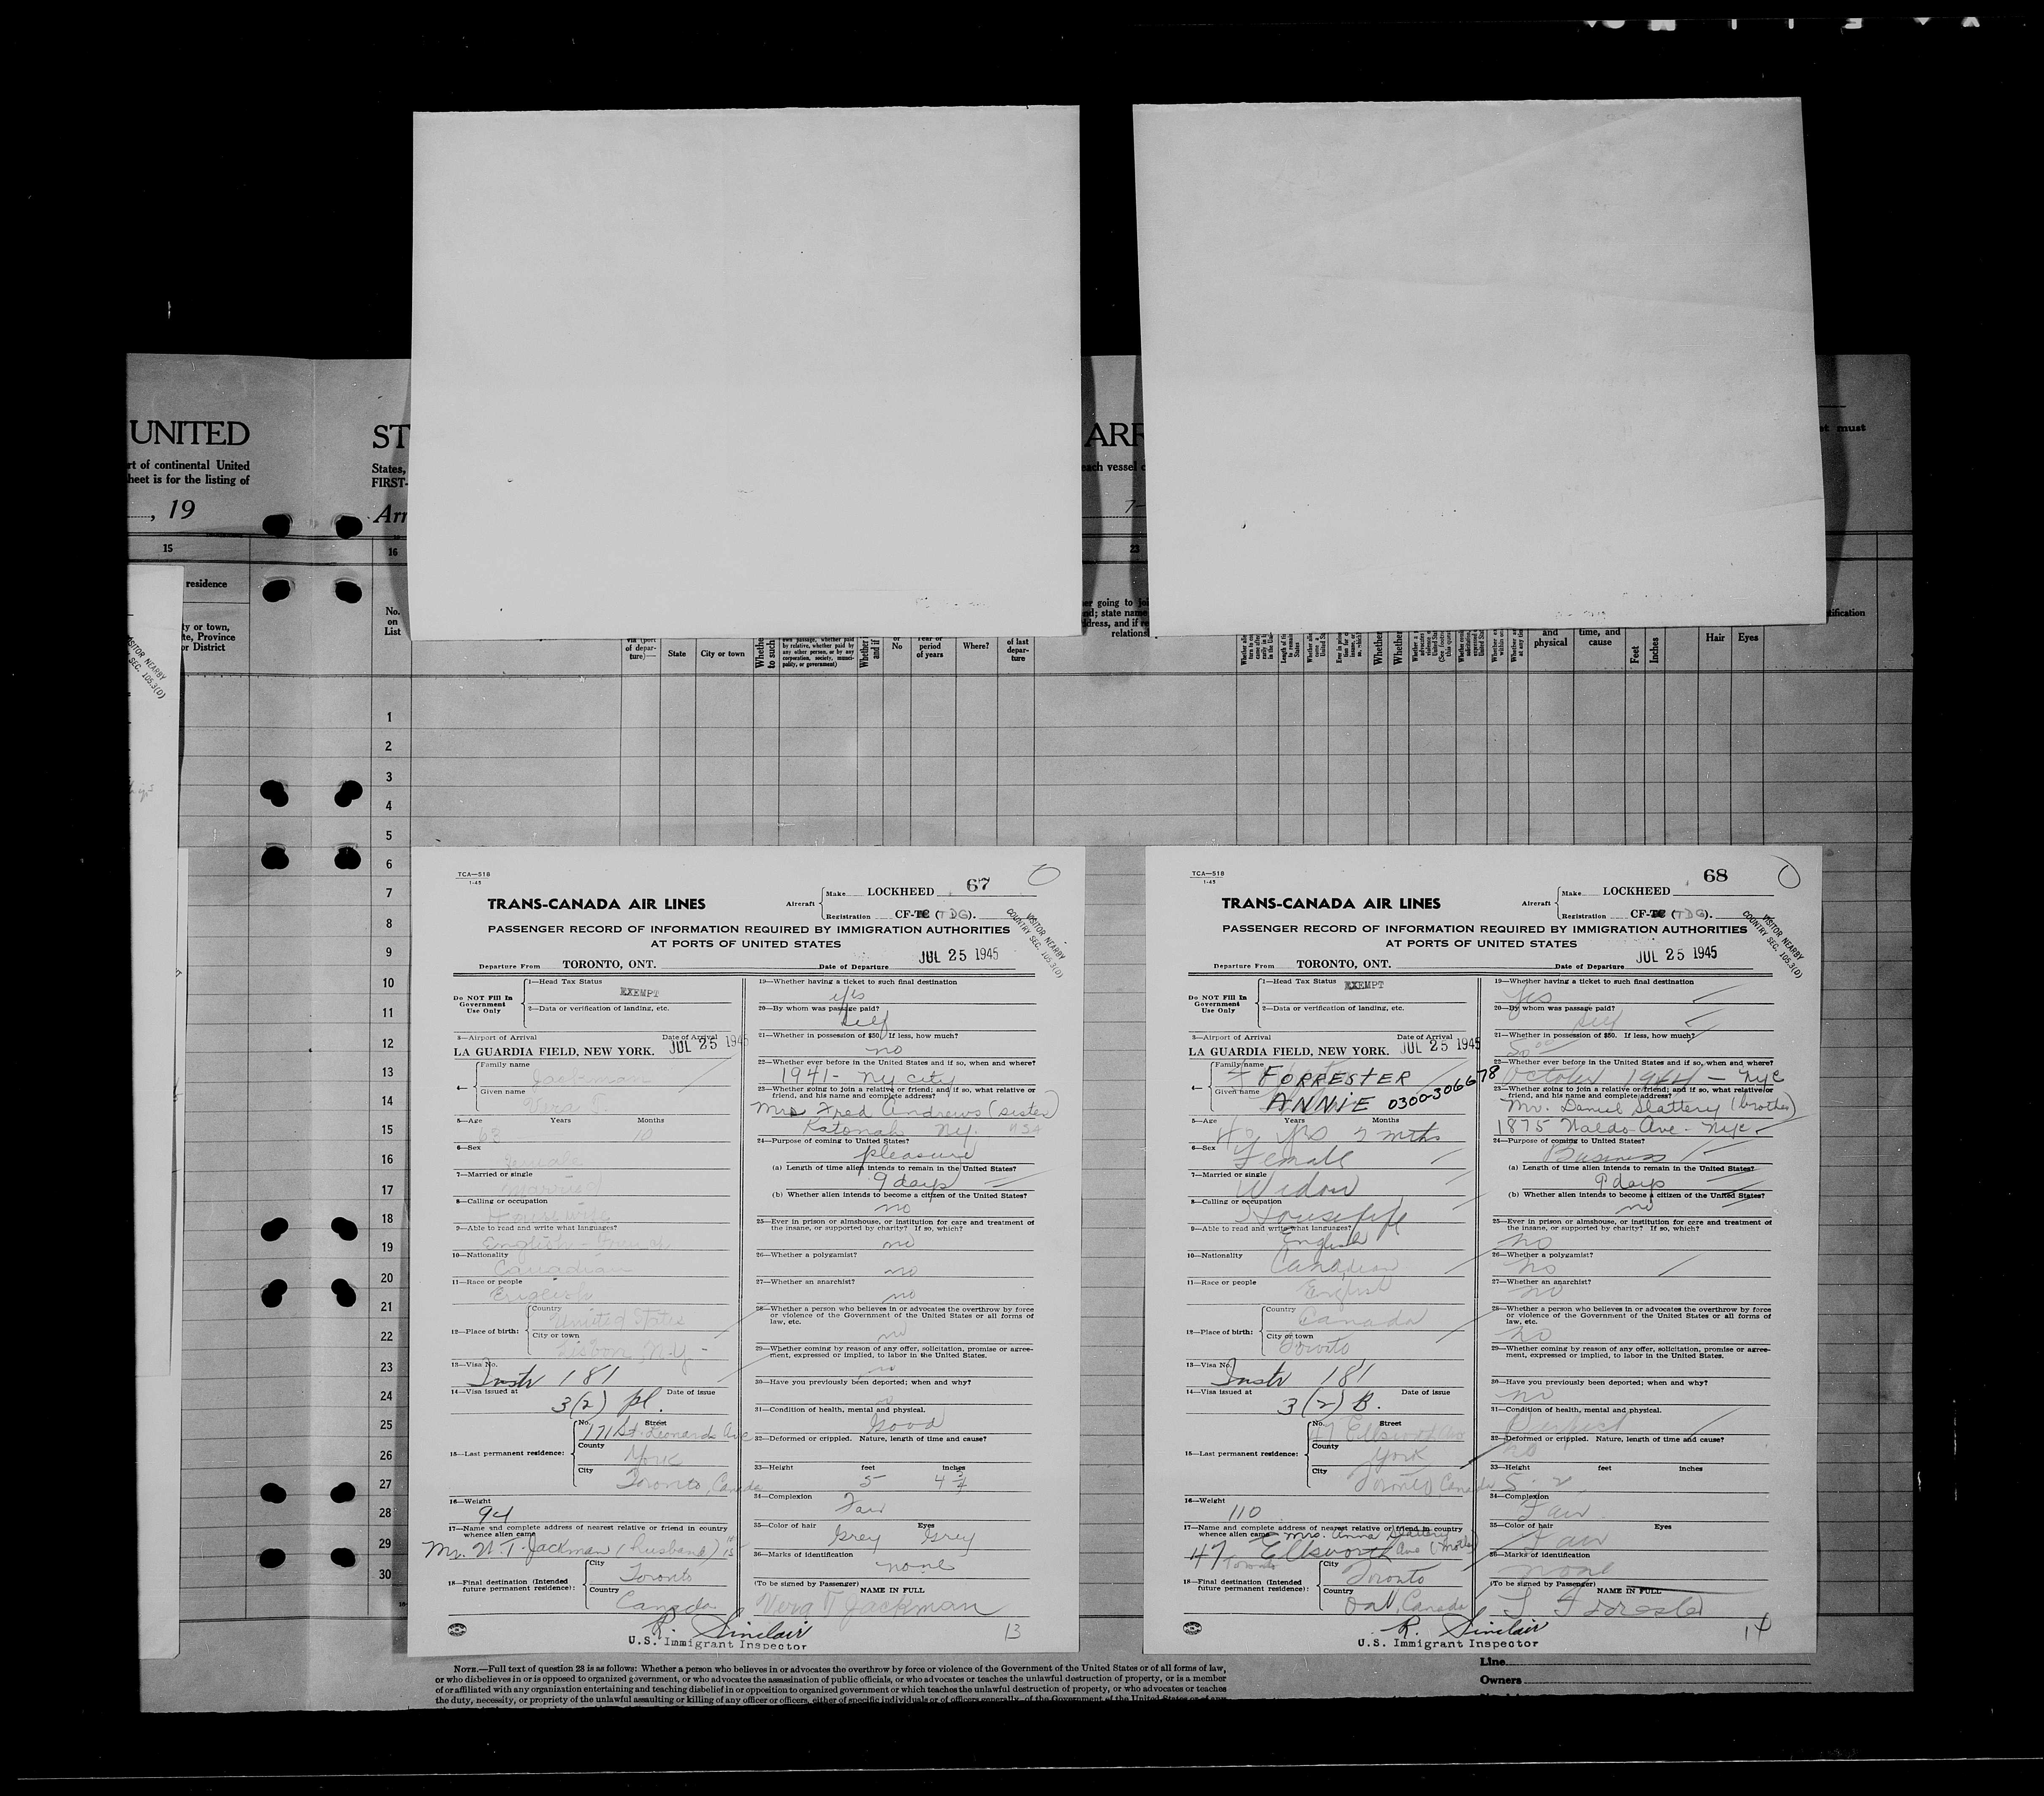 UNITED
rt of continental United
heet is for the listing of
, 19
15
residence
ty or town,
te, Province
or District
VISITOR NEARBY
SEC. 105.3(D)
ST
States,
FIRST-
Arr
16
No.
on
List
ARR
each vessel
7-
23
er going to joi
nd; state name
ddress, and if re
relations
st must
tification
via (port
of depar-
ture)—
State
City or town
Whethe
to such
own passage, whether paid
by relative, whether paid by
any other person, or by any
corporation, society, munici-
pality, or government)
Whether
and if
No
Year or
period
of years
Where?
of last
depar-
ture
and
physical
time, and
cause
Feet
Inches
Hair
Eyes
1
2
3
4
5
6
7
8
9
10
11
12
13
14
15
16
17
18
19
20
21
22
23
24
25
26
27
28
29
30
TCA—518
1-45
67
Aircraft
Make LOCKHEED
Registration CF-TC (TDG).
TRANS-CANADA AIR LINES
VISITOR NEARBY
COUNTRY SEC. 105.3(D)
PASSENGER RECORD OF INFORMATION REQUIRED BY IMMIGRATION AUTHORITIES
AT PORTS OF UNITED STATES
Departure From TORONTO, ONT. Date of Departure JUL 25 1945
Do NOT Fill In
Government
Use Only
1—Head Tax Status
EXEMPT
2—Data or verification of landing, etc.
3—Airport of Arrival Date of Arrival
LA GUARDIA FIELD, NEW YORK. JUL 25 1945
4—
Family name
Jackman
Given name
Vera T
5—Age Years Months
68 10
6—Sex
Female
7—Married or single
Married
8—Calling or occupation
Housewife
9—Able to read and write what languages?
English - French
10—Nationality
Canadian
11—Race or people
English
12—Place of birth:
Country
United States
City or town
Lisbon N.Y -
13—Visa No.
Instr 181
14—Visa issued at Date of issue
3(2) pl.
15—Last permanent residence:
No. Street
171 St. Leonards Ave
County
York
City
Toronto, Canada
16—Weight
94
17—Name and complete address of nearest relative or friend in country
whence alien came
Mr. W. T. Jackman (husband) 15
18—Final destination (Intended
future permanent residence):
City
Toronto
Country
Canada
R. Sinclair
U.S. Immigrant Inspector
19—Whether having a ticket to such final destination
yes
20—By whom was passage paid?
self
21—Whether in possession of $50. If less, how much?
no
22—Whether ever before in the United States and if so, when and where?
1941- NY city
23—Whether going to join a relative or friend; and if so, what relative or
friend, and his name and complete address?
Mrs Fred Andrews (sister)
Katonah NY. USA
24—Purpose of coming to United States?
pleasure
(a) Length of time alien intends to remain in the United States?
9 days
(b) Whether alien intends to become a citizen of the United States?
no
25—Ever in prison or almshouse, or institution for care and treatment of
the insane, or supported by charity? If so, which?
no
26—Whether a polygamist?
no
27—Whether an anarchist?
no
28—Whether a person who believes in or advocates the overthrow by force
or violence of the Government of the United States or all forms of
law, etc.
no
29—Whether coming by reason of any offer, solicitation, promise or agree-
ment, expressed or implied, to labor in the United States.
no
30—Have you previously been deported; when and why?
31—Condition of health, mental and physical.
Good
32—Deformed or crippled. Nature, length of time and cause?
33—Height feet inches
5 4 3/4
34—Complexion
Fair
35—Color of hair Eyes
Grey Grey
36—Marks of identification
none
(To be signed by Passenger)
NAME IN FULL
Vera T Jackman
13
TCA—518
1-45
68
Aircraft
Make LOCKHEED
Registration CF-TC (TDG).
TRANS-CANADA AIR LINES
VISITOR NEARBY
COUNTRY SEC. 105.3(D)
PASSENGER RECORD OF INFORMATION REQUIRED BY IMMIGRATION AUTHORITIES
AT PORTS OF UNITED STATES
Departure From TORONTO, ONT. Date of Departure JUL 25 1945
Do NOT Fill In
Government
Use Only
1—Head Tax Status
EXEMPT
2—Data or verification of landing, etc.
3—Airport of Arrival Date of Arrival
LA GUARDIA FIELD, NEW YORK. JUL 25 1945
4—
Family name
FORRESTER
Given name
ANNIE 0300-306678
5—Age Years Months
yrs 7 mths
6—Sex
Female
7—Married or single
Widow
8—Calling or occupation
Housewife
9—Able to read and write what languages?
English
10—Nationality
Canadian
11—Race or people
English
12—Place of birth:
Country
Canada
City or town
Toronto
13—Visa No.
Instr 181
14—Visa issued at Date of issue
3(2) B.
15—Last permanent residence:
No. Street
47 Ellsworth Av
County
York
City
Toronto Canada
16—Weight
110
17—Name and complete address of nearest relative or friend in country
whence alien came
Mrs. Anna Slattery
47 Ellsworth Ave (Mother)
Toronto
18—Final destination (Intended
future permanent residence):
City
Toronto
Country
Ont, Canada
R. Sinclair
U.S. Immigrant Inspector
19—Whether having a ticket to such final destination
Yes
20—By whom was passage paid?
self
21—Whether in possession of $50. If less, how much?
50.00
22—Whether ever before in the United States and if so, when and where?
October 1944 - NYC
23—Whether going to join a relative or friend; and if so, what relative or
friend, and his name and complete address?
Mr. Daniel Slattery (brother)
1875 Waldo Ave - NYC
24—Purpose of coming to United States?
Business
(a) Length of time alien intends to remain in the United States?
9 days
(b) Whether alien intends to become a citizen of the United States?
no
25—Ever in prison or almshouse, or institution for care and treatment of
the insane, or supported by charity? If so, which?
no
26—Whether a polygamist?
no
27—Whether an anarchist?
no
28—Whether a person who believes in or advocates the overthrow by force
or violence of the Government of the United States or all forms of
law, etc.
no
29—Whether coming by reason of any offer, solicitation, promise or agree-
ment, expressed or implied, to labor in the United States.
30—Have you previously been deported; when and why?
no
31—Condition of health, mental and physical.
Perfect
32—Deformed or crippled. Nature, length of time and cause?
no
33—Height feet inches
5 2
34—Complexion
Fair
35—Color of hair Eyes
Fair
36—Marks of identification
none
(To be signed by Passenger)
NAME IN FULL
Forrester
14
NOTE.—Full text of question 28 is as follows: Whether a person who believes in or advocates the overthrow by force or violence of the Government of the United States or of all forms of law,
or who disbelieves in or is opposed to organized government, or who advocates the assassination of public officials, or who advocates or teaches the unlawful destruction of property, or is a member
of or affiliated with any organization entertaining and teaching disbelief in or opposition to organized government or which teaches the unlawful destruction of property, or who advocates or teaches
the duty, necessity, or propriety of the unlawful assaulting or killing of any officer or officers, either of specific individuals or of officers generally, of the Government of the United States or of any
Line
Owners